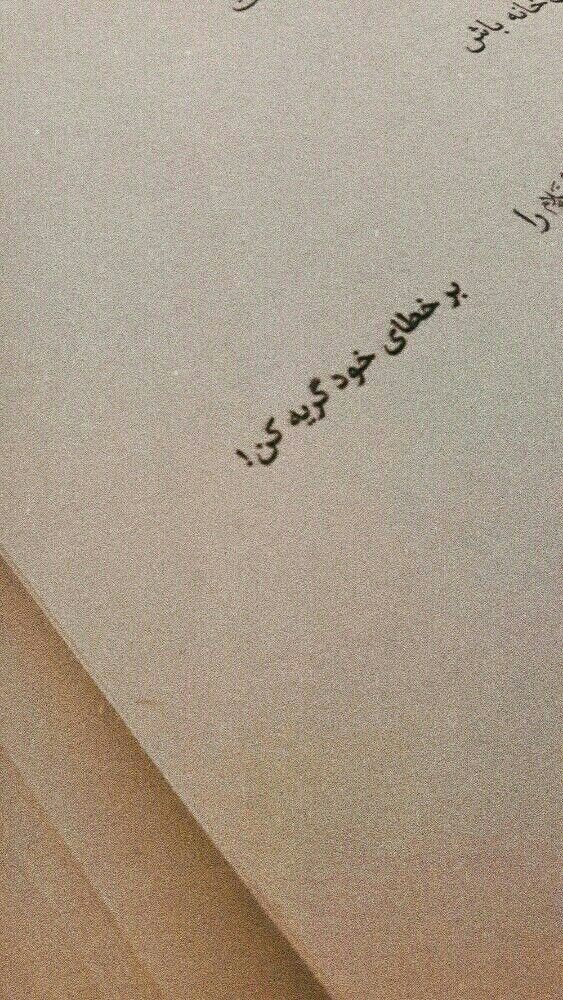 خانه باش
را
بر خطای خود گریه کن!